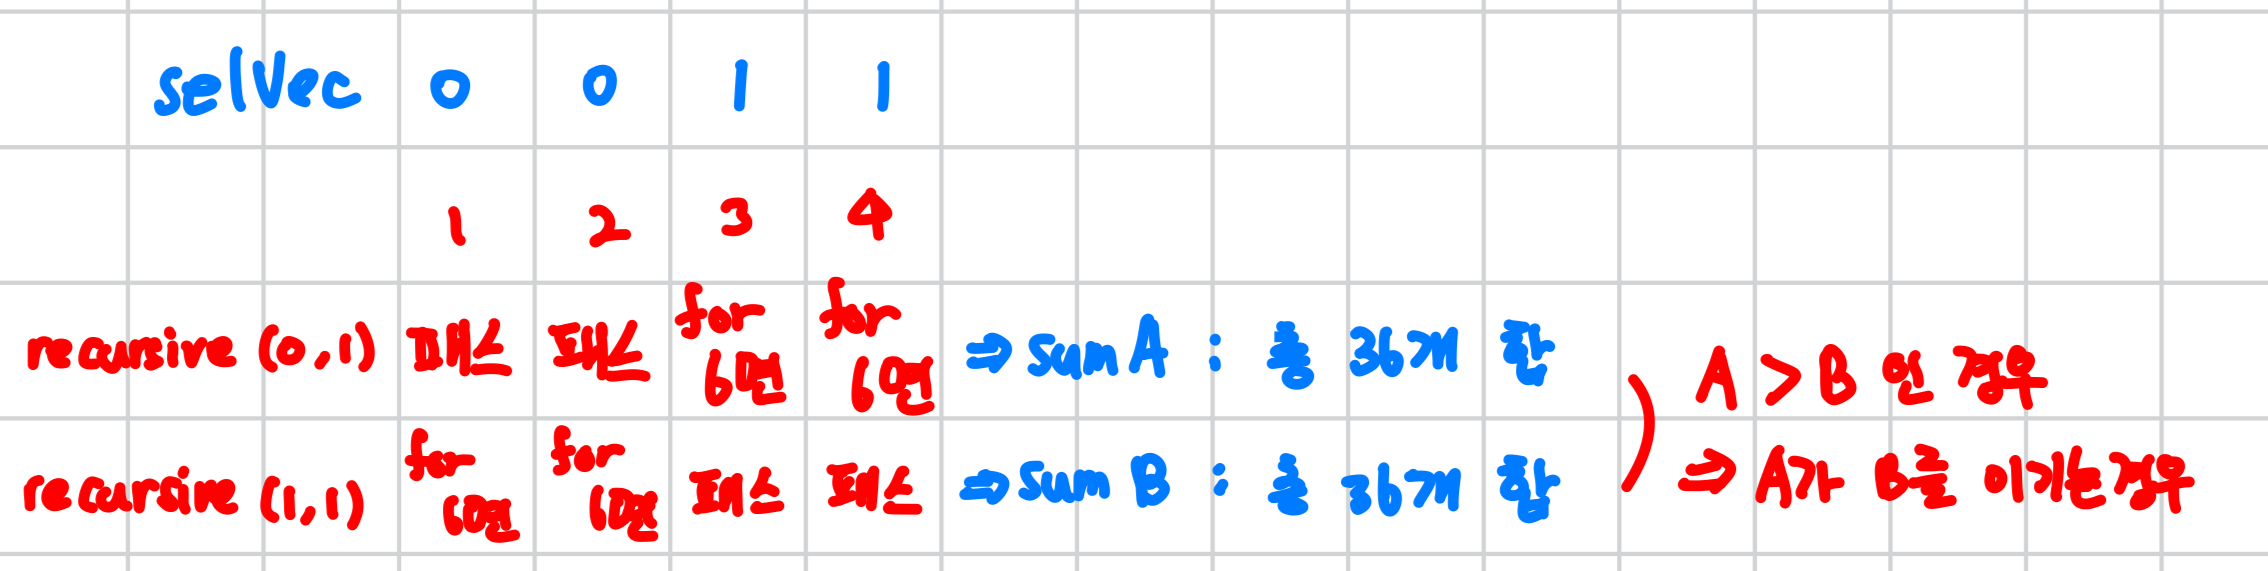 selVec 0 0 1 1
1 2 3 4
recursive (0,1) 패스 패스 for 6면 for 6면 ⇒ sum A : 총 36개 합
recursive (1,1) for 6면 for 6면 패스 패스 ⇒ sum B : 총 36개 합
A > B 인 경우
⇒ A가 B를 이기는 경우